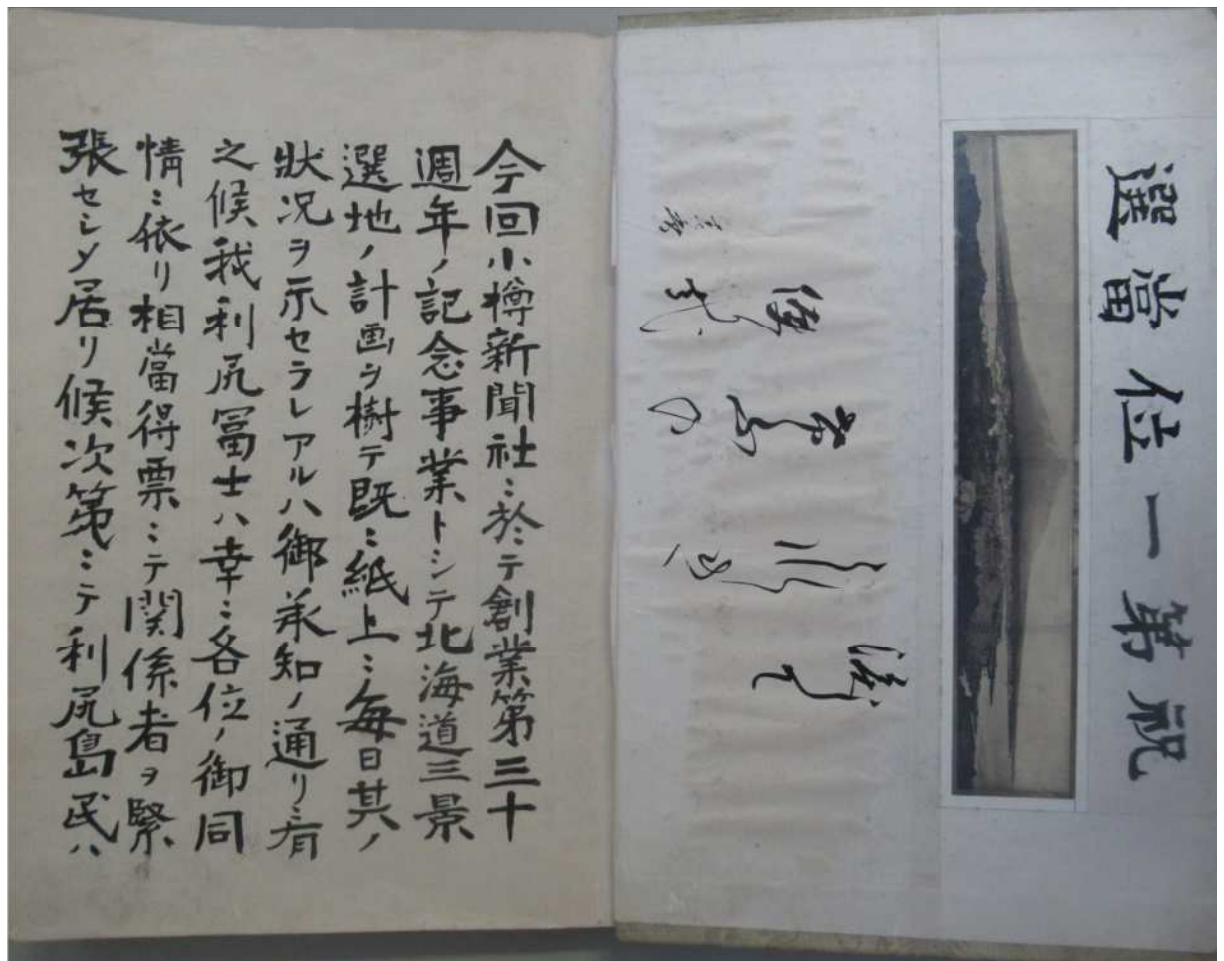 祝第一位當選
今回小樽新聞社ニ於テ創業第三十
週年ノ記念事業トシテ北海道三景
選地ノ計画ヲ樹テ既ニ紙上ニ毎日其ノ
狀況ヲ示セラレアルハ御承知ノ通リニ有
之候我利尻冨士ハ幸ニ各位ノ御同
情ニ依リ相當得票ニテ関係者ヲ緊
張セシメ居リ候次第ニテ利尻島民ハ